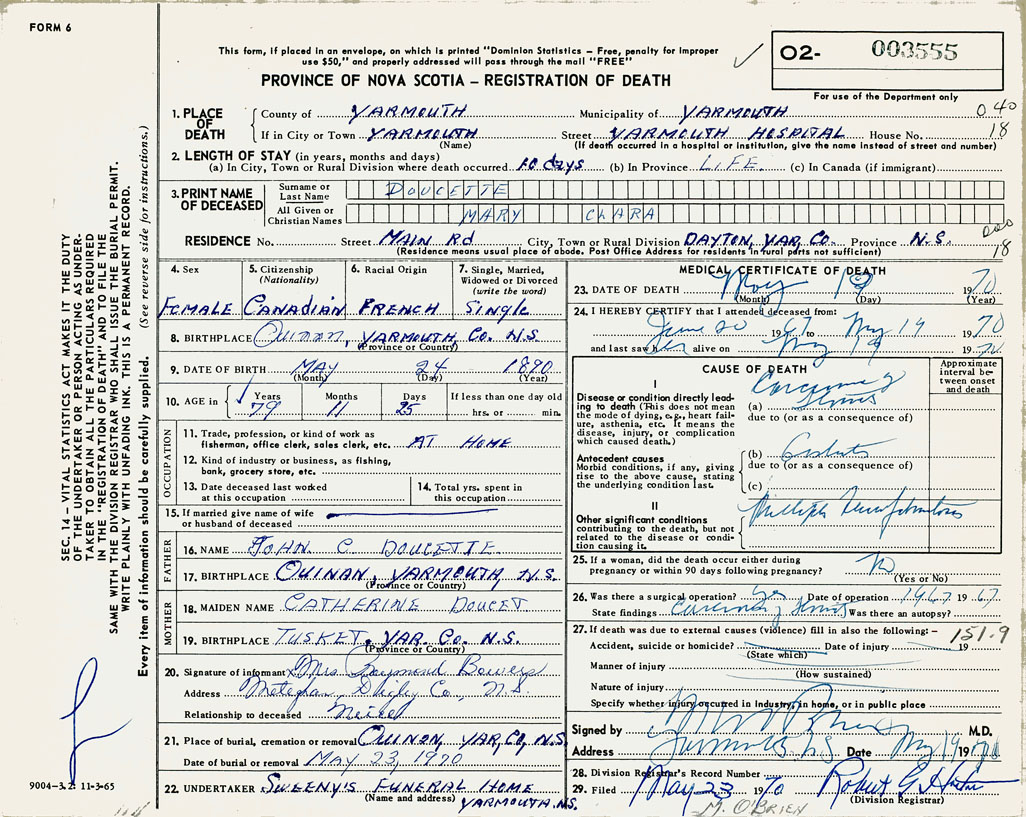 FORM 6
This form, if placed in an envelope, on which is printed "Dominion Statistics – Free, penalty for improper
use $50," and properly addressed will pass through the mail "FREE"
PROVINCE OF NOVA SCOTIA – REGISTRATION OF DEATH
02- 003555
For use of the Department only
040
18
1. PLACE OF DEATH County of YARMOUTH Municipality of YARMOUTH
If in City or Town YARMOUTH Street YARMOUTH HOSPITAL House No.
(Name) (If death occurred in a hospital or institution, give the name instead of street and number)
2. LENGTH OF STAY (in years, months and days)
(a) In City, Town or Rural Division where death occurred 10 days (b) In Province LIFE. (c) In Canada (if immigrant)
3. PRINT NAME OF DECEASED
Surname or Last Name DOUCETTE
All Given or Christian Names MARY CLARA
RESIDENCE No. Street MAIN Rd City, Town or Rural Division DAYTON, YAR. Co. Province N.S.
(Residence means usual place of abode. Post Office Address for residents in rural parts not sufficient)
000
18
4. Sex
FEMALE
5. Citizenship (Nationality)
CANADIAN
6. Racial Origin
FRENCH
7. Single, Married, Widowed or Divorced (write the word)
Single
8. BIRTHPLACE Quinan, YARMOUTH Co. N.S.
(Province or Country)
9. DATE OF BIRTH MAY 24 1890
(Month) (Day) (Year)
10. AGE in Years Months Days If less than one day old
79 11 25 hrs. or min.
OCCUPATION
11. Trade, profession, or kind of work as
fisherman, office clerk, sales clerk, etc. AT HOME
12. Kind of industry or business, as fishing,
bank, grocery store, etc.
13. Date deceased last worked
at this occupation
14. Total yrs. spent in
this occupation
15. If married give name of wife
or husband of deceased
FATHER
16. NAME JOHN C DOUCETTE
17. BIRTHPLACE QUINAN, YARMOUTH, N.S.
(Province or Country)
MOTHER
18. MAIDEN NAME CATHERINE DOUCET
19. BIRTHPLACE TUSKET, YAR. Co. N.S.
(Province or Country)
20. Signature of informant Mrs Raymond Bowers
Address Meteghan, Digby Co, N.S.
Relationship to deceased Neice
21. Place of burial, cremation or removal QUINAN, YAR, CO, N.S.
Date of burial or removal MAY 23, 1970
22. UNDERTAKER SWEENY'S FUNERAL HOME
(Name and address) YARMOUTH, N.S.
MEDICAL CERTIFICATE OF DEATH
23. DATE OF DEATH May 19 1970
(Month) (Day) (Year)
24. I HEREBY CERTIFY that I attended deceased from:
June 20 1967 to May 19 1970
and last saw her alive on May 19 1970
CAUSE OF DEATH
Approximate interval between onset and death
I
Disease or condition directly leading to death (This does not mean the mode of dying, e.g., heart failure, asthenia, etc. It means the disease, injury, or complication which caused death.)
(a) Carcinoma of
due to (or as a consequence of)
Antecedent causes
Morbid conditions, if any, giving rise to the above condition, stating the underlying condition last.
(b)
due to (or as a consequence of)
(c)
II
Other significant conditions contributing to the death, but not related to the disease or condition causing it.
Multiple
25. If a woman, did the death occur either during
pregnancy or within 90 days following pregnancy? No
(Yes or No)
26. Was there a surgical operation? Yes Date of operation 1967 1967
State findings Carcinoma of Was there an autopsy?
27. If death was due to external causes (violence) fill in also the following:– 151.9
Accident, suicide or homicide? Date of injury 19
(State which)
Manner of injury
(How sustained)
Nature of injury
Specify whether injury occurred in industry, in home, or in public place
Signed by M.D.
Address Yarmouth N.S. Date May 19 1970
28. Division Registrar's Record Number
29. Filed May 23 1970 Robert G.
(Division Registrar)
M. O'BRIEN
SEC. 14 – VITAL STATISTICS ACT MAKES IT THE DUTY
OF THE UNDERTAKER OR PERSON ACTING AS UNDER-
TAKER TO OBTAIN ALL THE PARTICULARS REQUIRED
IN THE "REGISTRATION OF DEATH" AND TO FILE THE
SAME WITH THE DIVISION REGISTRAR WHO SHALL ISSUE THE BURIAL PERMIT.
WRITE PLAINLY WITH UNFADING INK. THIS IS A PERMANENT RECORD.
Every item of information should be carefully supplied. (See reverse side for instructions.)
9004-3.2: 11-3-65